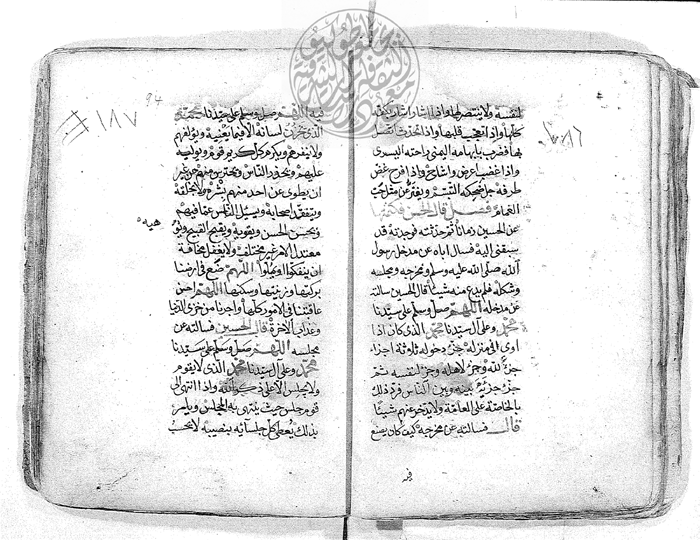 لنفسه ولا ينتصر لها واذا اشار اشار بكفه
كلها واذا تعجب قلبها واذا تحدث اتصل
بها فضرب بابهامه اليمنى راحته اليسرى
واذا غضب اعرض واشاح واذا فرح غض
طرفه جل ضحكه التبسم ويفتر عن مثل حب
الغمام فصل قال الحسن فكتمتها
عن الحسين زمانا ثم حدثته فوجدته قد
سبقني اليه فسال اباه عن مدخل رسول
الله صلى الله عليه وسلم ومخرجه ومجلسه
وشكله فلم يدع منه شيئا قال الحسين سالته
عن مدخله اللهم صل وسلم على سيدنا
محمد وعلى ال سيدنا محمد الذي كان اذا
اوى الى منزله جزء دخوله ثلاثة اجزاء
جزء لله وجزء لاهله وجزء لنفسه ثم
جزء جزئه بينه وبين الناس فرد ذلك
بالخاصة على العامة ولا يدخر عنهم شيئا
قال فسالته عن مخرجه كيف كان يصنع
فيه
94
١٨٧
فيه اللهم صل وسلم على سيدنا محمد
الذي يخزن لسانه الا فيما يعنيه ويؤلفهم
ولا ينفرهم ويكرم كل كريم قوم ويوليه
عليهم ويحذر الناس ويحترس منهم من غير
ان يطوى عن احد منهم بشره ولا خلقه
ويتفقد اصحابه ويسئل الناس عما فيهم
ويحسن الحسن ويقويه ويقبح القبيح ويو
هيه
معتدل الامر غير مختلف ولا يغفل مخافة
ان يغفلوا او يملوا اللهم ضع في ارضنا
بركتها وزينتها وسكنها اللهم احسن
عاقبتنا في الامور كلها واجرنا من خزي الدنيا
وعذاب الاخرة قال الحسين فسالته عن
مجلسه اللهم صل وسلم على سيدنا
محمد وعلى ال سيدنا محمد الذي لا يقوم
ولا يجلس الا على ذكر الله واذا انتهى الى
قوم جلس حيث ينتهى به المجلس ويامر
بذلك يعطى كل جلسائه بنصيبه لا يحسب